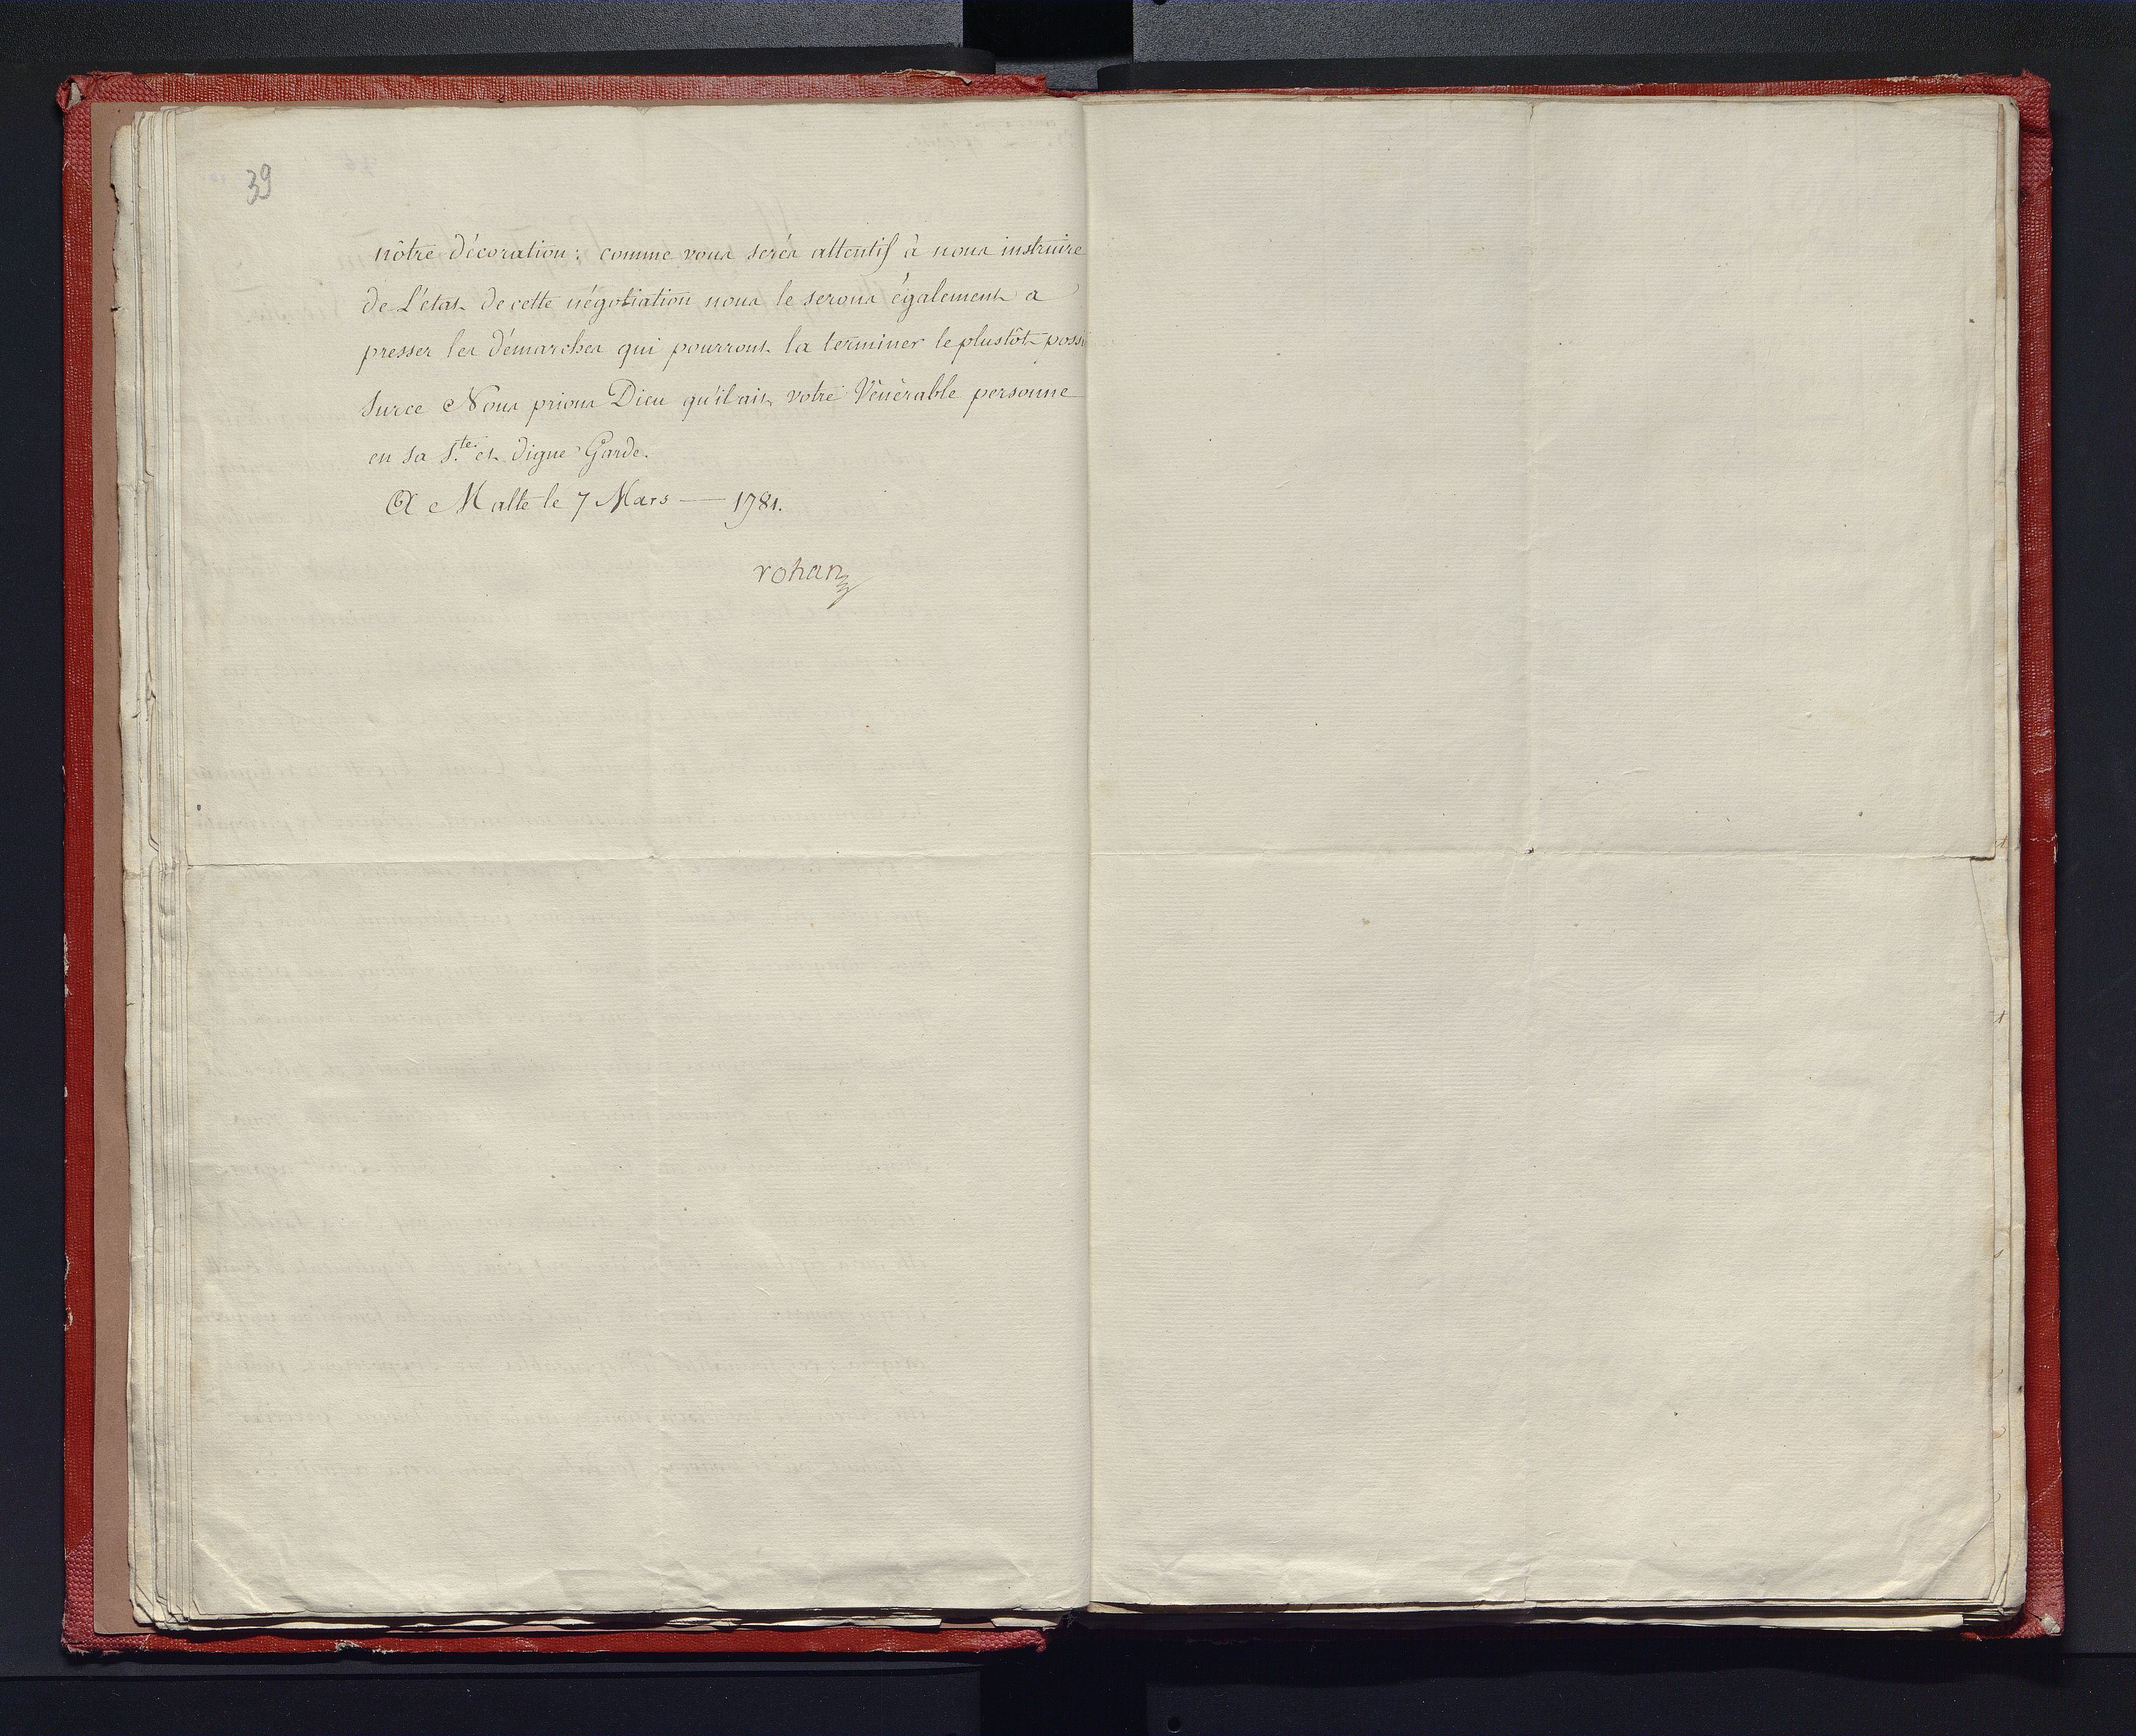 39
nôtre décoration: comme vous serés attentif à nous instruire
de L'état de cette négotiation nous le serons également a
presser les démarches qui pourront la terminer le plustôt possi
surce Nous prions Dieu qu'il ait votre Vénérable personne
en sa S.te et digne Garde.
A Malte le 7 Mars — 1781.
rohan